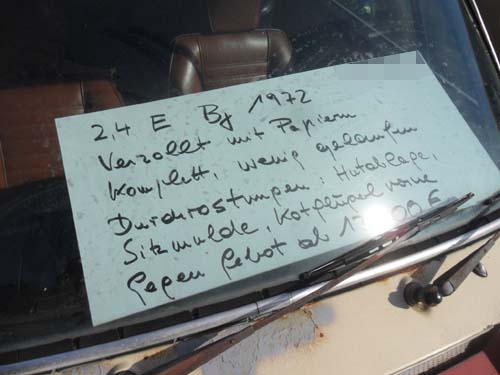 2,4 E Bj 1972
Verzollt mit Papieren
Komplett, wenig gelaufen
Durchrostungen: Hutablage,
Sitzmulde, Kotflügel vorne
Gegen Gebot ab